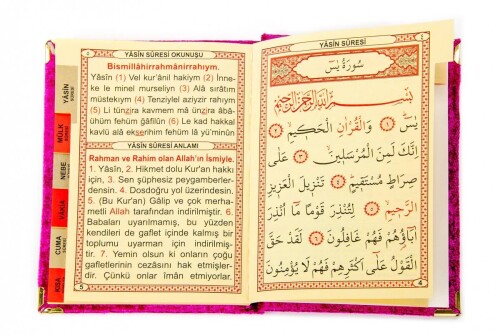 YÂSİN SÛRESİ OKUNUŞU
Bismillâhirrahmânirrahıym.
Yâsîn (1) Vel kur'ânil hakiym (2) İnne-
ke le minel murseliyn (3) Alâ sırâtım
müstekıym (4) Tenziylel aziyzir rahıym
(5) Li tünzira kavmem mâ ünzira âbâ-
ühüm fehüm ğâfilûn (6) Le kad hakkal
kavlü alâ ekserihim fehüm lâ yü'minûn
YÂSÎN SÛRESİ ANLAMI
Rahman ve Rahim olan Allah'ın İsmiyle.
1. Yâsîn, 2. Hikmet dolu Kur'an hakkı
için, 3. Sen şüphesiz peygamberler-
densin. 4. Dosdoğru yol üzerindesin.
5. (Bu Kur'an) Gâlip ve çok merha-
metli Allah tarafından indirilmiştir. 6.
Babaları uyarılmamış, bu yüzden
kendileri de gaflet içinde kalmış bir
toplumu uyarman için indirilmiş-
tir. 7. Yemin olsun ki onların çoğu
gafletlerinin cezasını hak etmişler-
dir. Çünkü onlar iman etmiyorlar.
5
YÂSİN
SÛRESİ
MÜLK
SÛRESİ
NEBE
SÛRESİ
VÂKIA
SÛRESİ
CUMA
SÛRESİ
KISA
YÂSÎN SÛRESİ
سُورَةُ يٰسٓ
بِسْمِ اللّٰهِ الرَّحْمٰنِ الرَّحِيمِ
يٰسٓ ﴿١﴾ وَالْقُرْاٰنِ الْحَكِيمِ ﴿٢﴾
اِنَّكَ لَمِنَ الْمُرْسَلِينَ ﴿٣﴾ عَلٰى
صِرَاطٍ مُسْتَقِيمٍ ﴿٤﴾ تَنْزِيلَ الْعَزِيزِ
الرَّحِيمِ ﴿٥﴾ لِتُنْذِرَ قَوْمًا مَٓا اُنْذِرَ
اٰبَٓاؤُ۬هُمْ فَهُمْ غَافِلُونَ ﴿٦﴾ لَقَدْ حَقَّ
الْقَوْلُ عَلٰٓى اَكْثَرِهِمْ فَهُمْ لَا يُؤْمِنُونَ
4